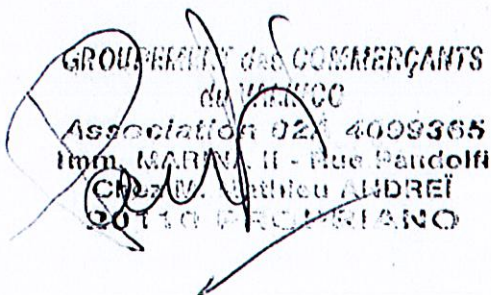 GROUPEMENT des COMMERÇANTS
du VALINCO
Association 02A 4009365
Imm. MARINA II - Rue Pandolfi
Chez M. Mathieu ANDREÏ
20110 PROPRIANO